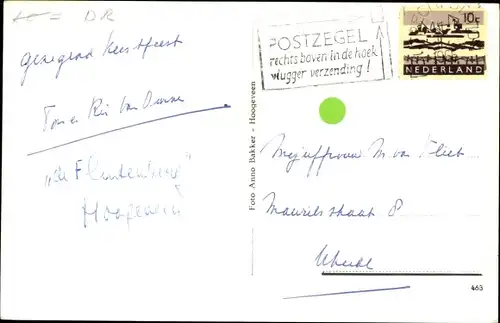 DR
Gezegend Kerstfeest
"De Fluitenberg"
Hoogeveen
POSTZEGEL
rechts boven in de hoek
vlugger verzending!
10c
NEDERLAND
Foto Anno Bakker - Hoogeveen
Mejuffrouw M. van Vliet
Mauritsstraat 8
Utrecht
463